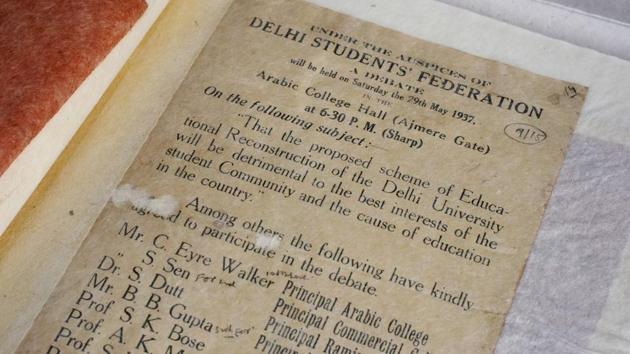 UNDER THE AUSPICES OF
DELHI STUDENTS' FEDERATION
A DEBATE
will be held on Saturday the 29th May 1937.
IN THE
Arabic College Hall (Ajmere Gate)
at 6-30 P. M. (Sharp)
On the following subject:—
"That the proposed scheme of Educa-
tional Reconstruction of the Delhi University
will be detrimental to the best interests of the
student Community and the cause of education
in the country."
Among others the following have kindly
agreed to participate in the debate.
Mr. C. Eyre Walker Principal Arabic College
" S. Sen Principal Commercial
Dr. S. Dutt Principal
Mr. B. B. Gupta Principal
Prof. S. K. Bose
Prof. A. K.
Prof.